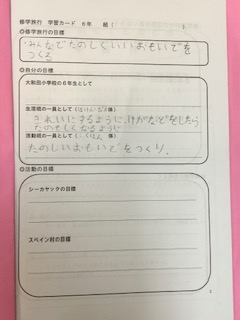 修学旅行 学習カード 6年 組（ ）
◎修学旅行の目標
・みんなでたのしくいいおもいでを
つくる
◎自分の目標
大和田小学校の6年生として
生活班の一員として（ほけん・び係）
きれいにするように、けがなどをしたら
たのもしくなるように
活動班の一員として（ 係）
たのしいおもいでをつくり、
◎活動の目標
シーカヤックの目標
スペイン村の目標